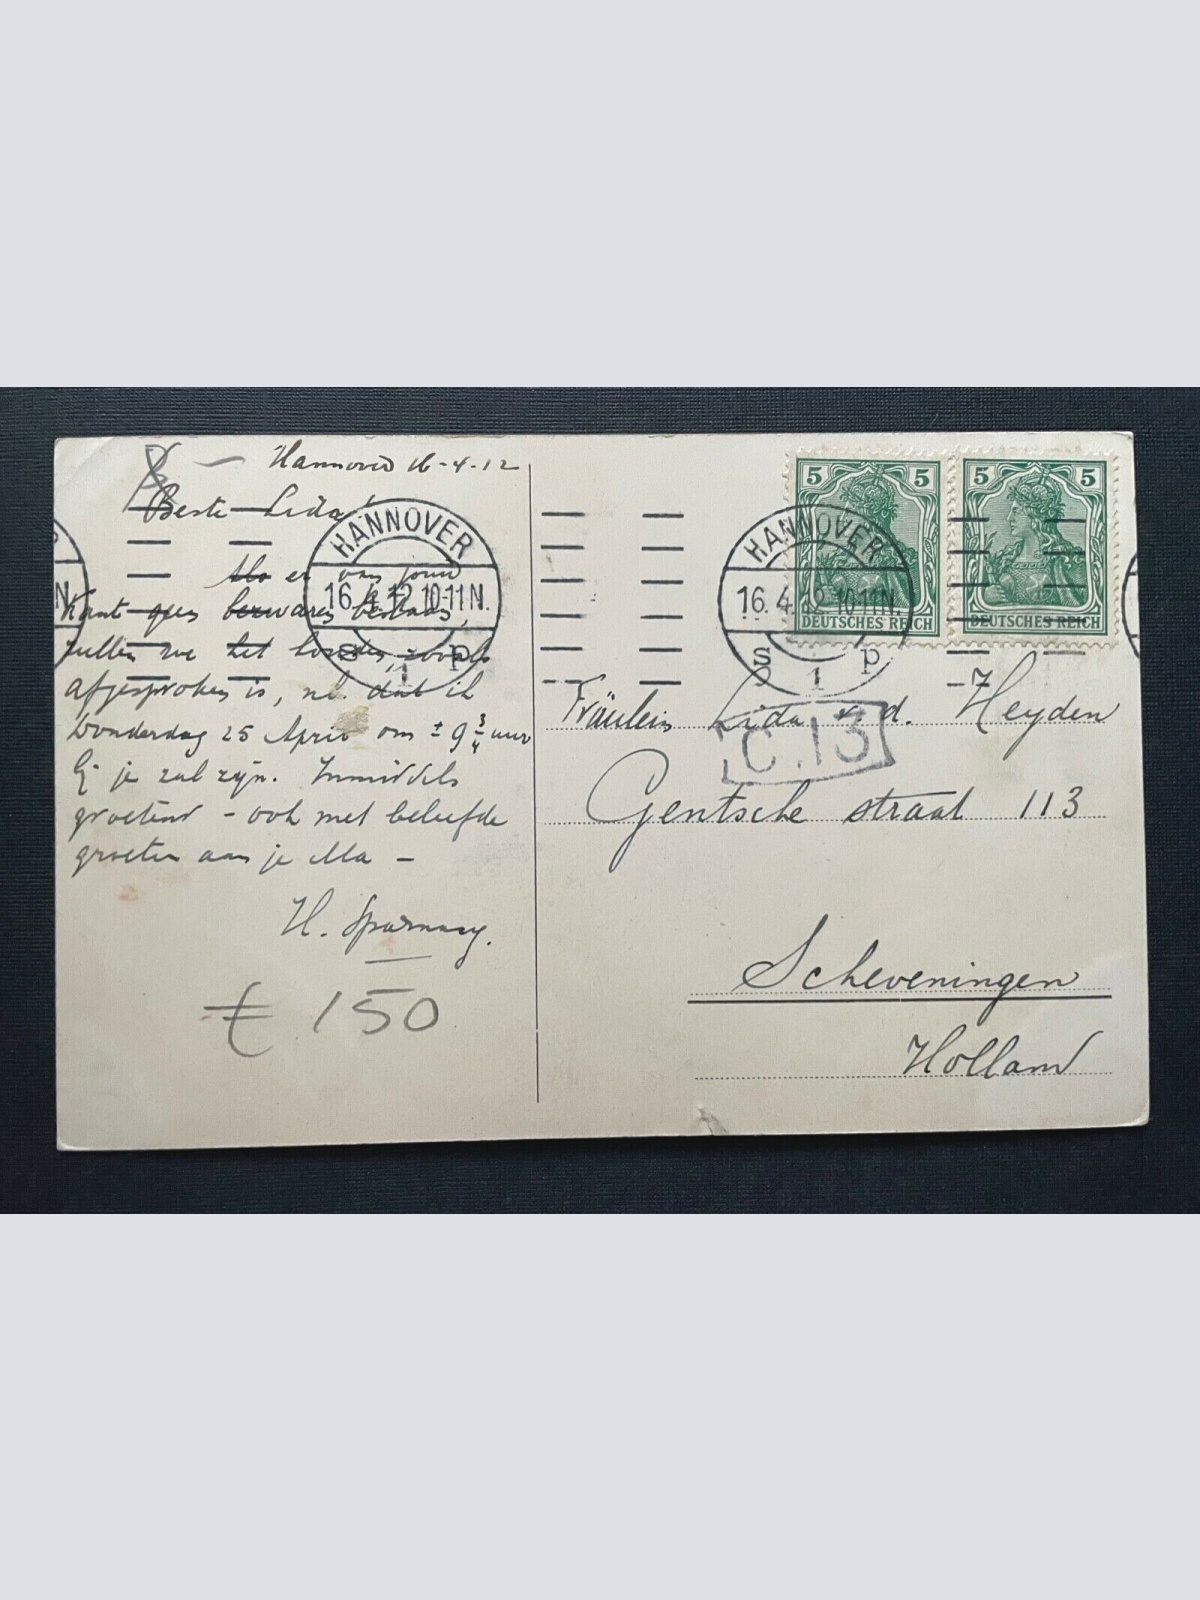 Hannover 16-4.12
Beste Lida!
Als er van jouw
kant geen bezwaren bestaan,
zullen we het houden, zooals
afgesproken is, nl. dat ik
Donderdag 25 April om ± 9 3/4 uur
bij je zal zijn. Inmiddels
groetend - ook met beleefde
groeten aan je Ma -
H. Sparnaay.
€ 150
HANNOVER
16.4.12.10-11N.
S 1 p
HANNOVER
16.4.12.10-11N.
S 1 p
5 5
DEUTSCHES REICH
5 5
DEUTSCHES REICH
-7
Fräulein Lida v. d. Heyden
C.13
Gentsche straat 113
Scheveningen
Holland